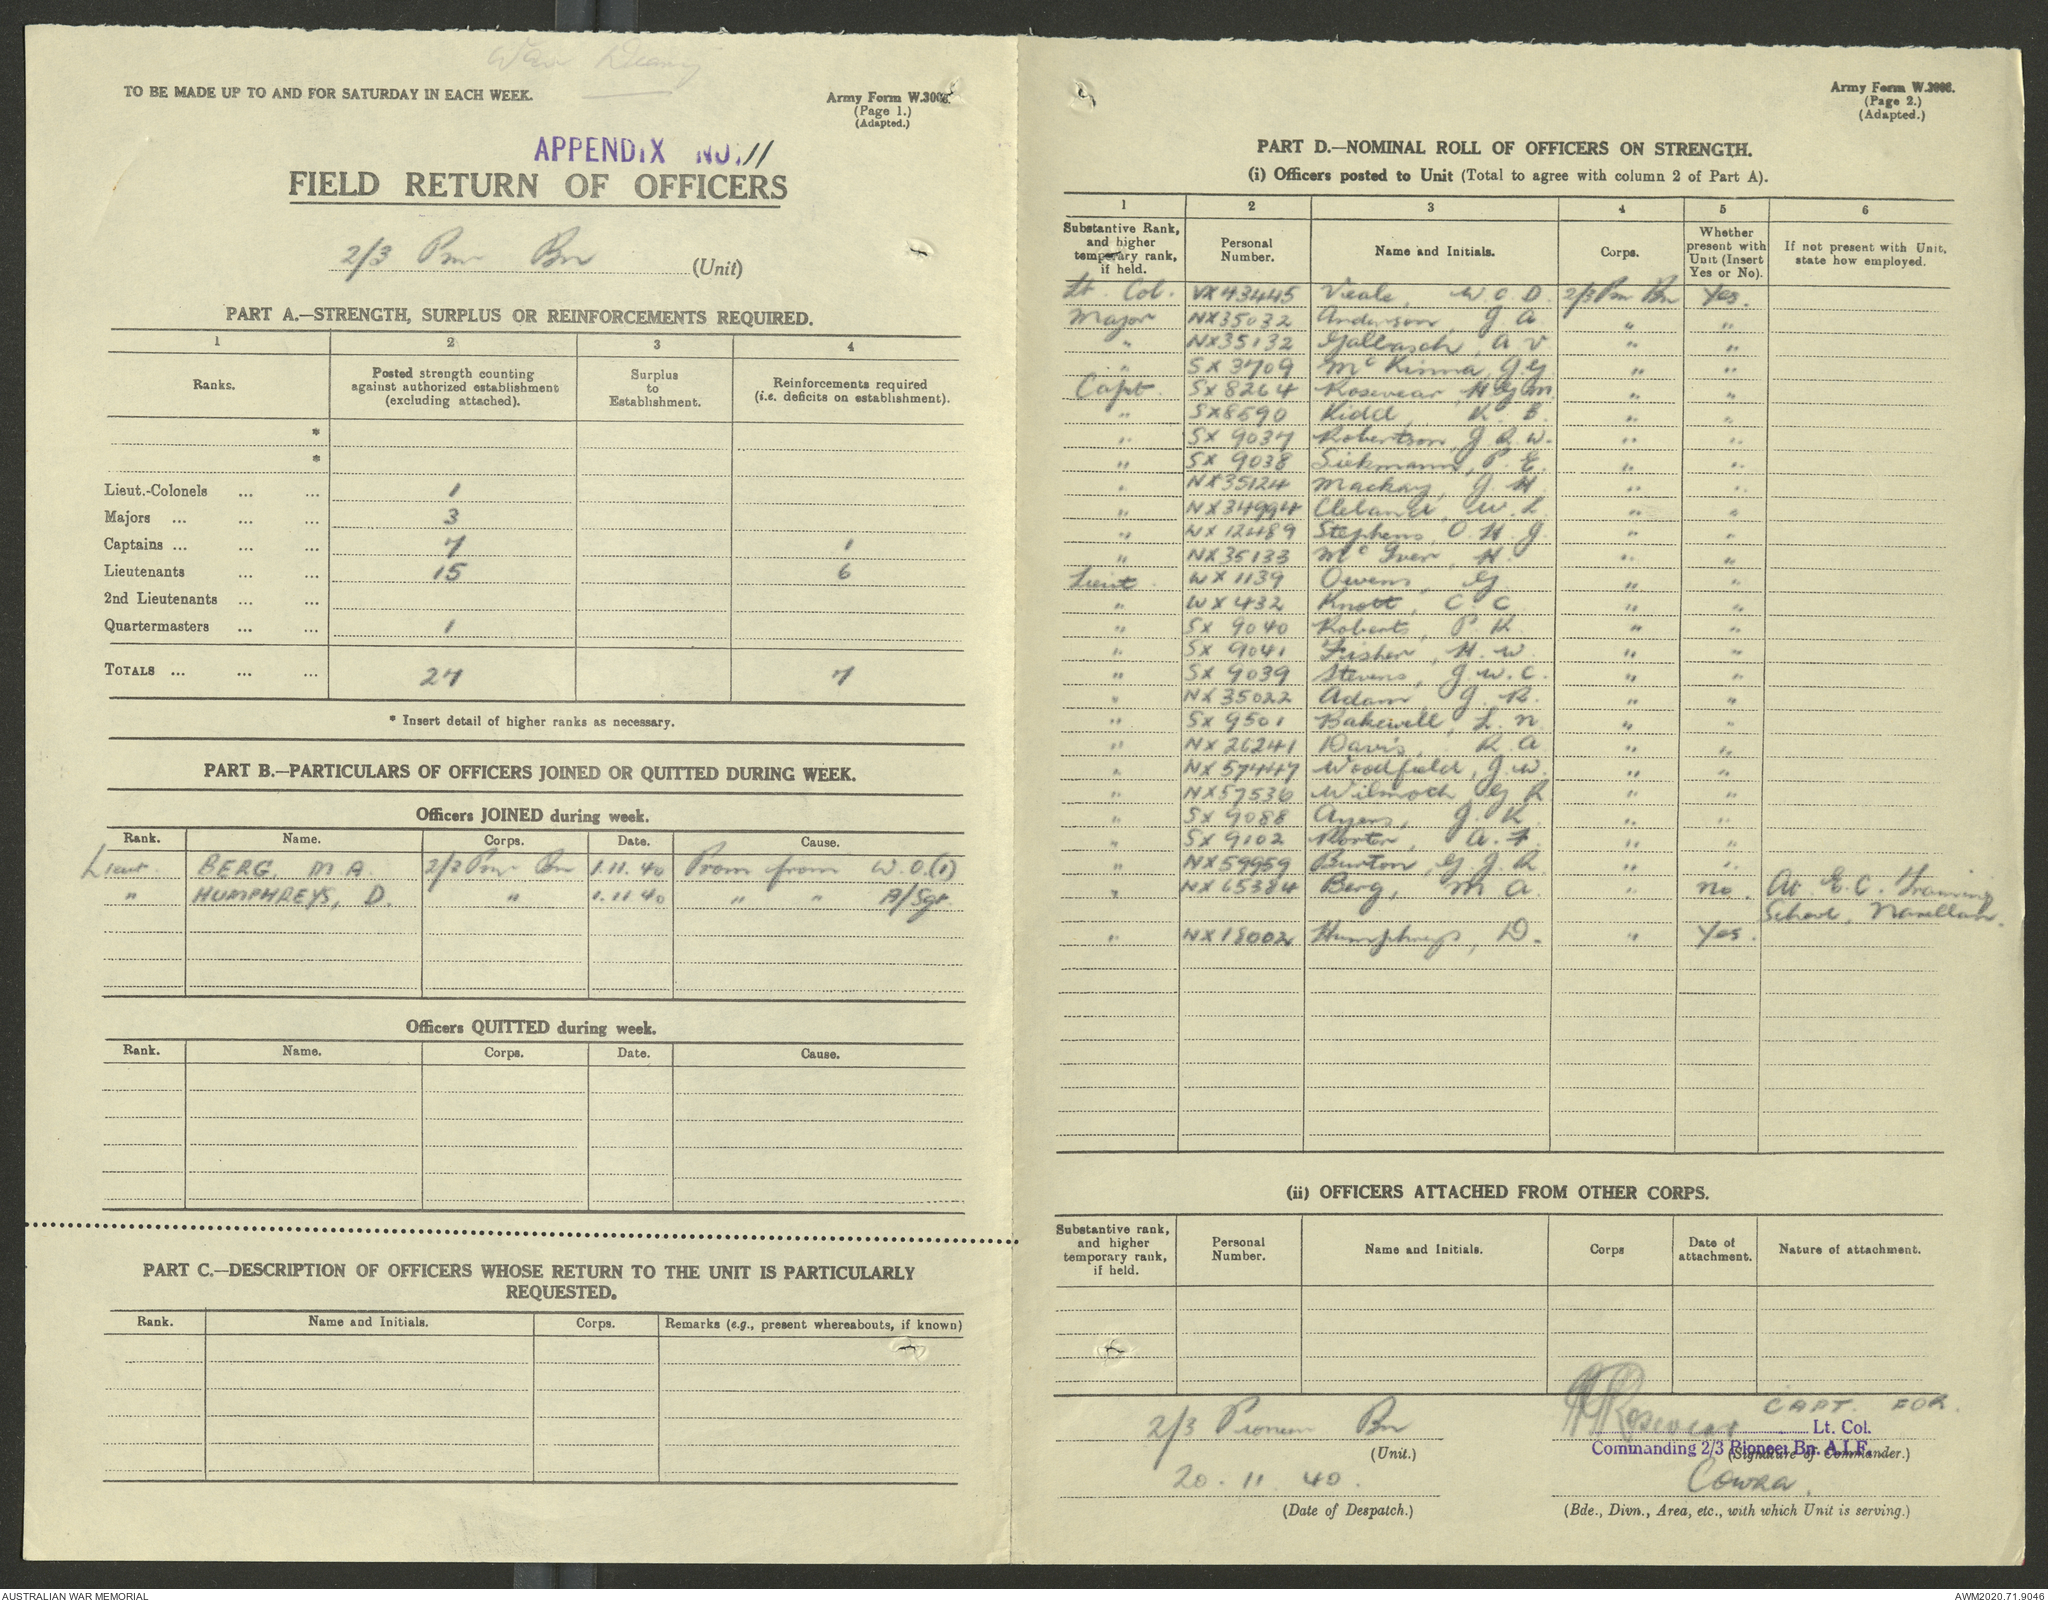 War Diary
TO BE MADE UP TO AND FOR SATURDAY IN EACH WEEK.
Army Form W.3008.
(Page 1.)
(Adapted.)
APPENDIX NO. 11
FIELD RETURN OF OFFICERS
2/3 Pnr Bn (Unit)
PART A.—STRENGTH, SURPLUS OR REINFORCEMENTS REQUIRED.
1 2 3 4
Ranks. Posted strength counting against authorized establishment (excluding attached). Surplus to Establishment. Reinforcements required (i.e. deficits on establishment).
*
*
Lieut.-Colonels ... ... 1
Majors ... ... ... 3
Captains ... ... ... 7 1
Lieutenants ... ... 15 6
2nd Lieutenants ... ...
Quartermasters ... ... 1
TOTALS ... ... ... 27 7
* Insert detail of higher ranks as necessary.
PART B.—PARTICULARS OF OFFICERS JOINED OR QUITTED DURING WEEK.
Officers JOINED during week.
Rank. Name. Corps. Date. Cause.
Lieut. BERG, M A. 2/3 Pnr Bn 1.11.40 Prom from W.O.(1)
" HUMPHREYS, D. " 1.11.40 " " A/Sgt.
Officers QUITTED during week.
Rank. Name. Corps. Date. Cause.
PART C.—DESCRIPTION OF OFFICERS WHOSE RETURN TO THE UNIT IS PARTICULARLY
REQUESTED.
Rank. Name and Initials. Corps. Remarks (e.g., present whereabouts, if known)
Army Form W.3008.
(Page 2.)
(Adapted.)
PART D.—NOMINAL ROLL OF OFFICERS ON STRENGTH.
(i) Officers posted to Unit (Total to agree with column 2 of Part A).
1 2 3 4 5 6
Substantive Rank, and higher temporary rank, if held. Personal Number. Name and Initials. Corps. Whether present with Unit (Insert Yes or No). If not present with Unit, state how employed.
Lt. Col. VX43445 Veale, W C D. 2/3 Pnr Bn Yes.
Major NX35032 Anderson, J A. " "
" NX35132 Gallasch, A V " "
" SX 3709 McKinna, J G. " "
Capt. SX 8264 Rosevear, H G M. " "
" SX8590 Kidd, K B. " "
" SX 9037 Robertson, J R W. " "
" SX 9038 Siekmann, P E. " "
" NX35124 Mackay, J H. " "
" NX34994 Cleland, W L. " "
" WX 12489 Stephens, O H J. " "
" NX35133 McIver, H. " "
Lieut. WX 1139 Owens, G " "
" WX 432 Knott, C C " "
" SX 9040 Roberts, P K. " "
" SX 9041 Fisher, H. W. " "
" SX 9039 Stevens, J. W. C. " "
" NX 35022 Adam, J R. " "
" SX 9501 Bakewell, L. N. " "
" NX 26241 Davis, R A. " "
" NX 57447 Woodfield, J. W. " "
" NX57536 Wilmoth, G R " "
" SX 9088 Ayers, J. K. " "
" SX 9102 Porter, A. F. " "
" NX59959 Burton, G J R. " "
" NX 65384 Berg, M A. " No. At E. C. Training
School, Narellan.
" NX 18002 Humphreys, D. " Yes.
(ii) OFFICERS ATTACHED FROM OTHER CORPS.
Substantive rank, and higher temporary rank, if held. Personal Number. Name and Initials. Corps Date of attachment. Nature of attachment.
2/3 Pioneer Bn (Unit.)
HRosevear CAPT. FOR
Lt. Col.
Commanding 2/3 Pioneer Bn. A.I.F.
(Signature of Commander.)
20. 11. 40. (Date of Despatch.)
Cowra.
(Bde., Divn., Area, etc., with which Unit is serving.)
AUSTRALIAN WAR MEMORIAL
AWM2020.71.9046